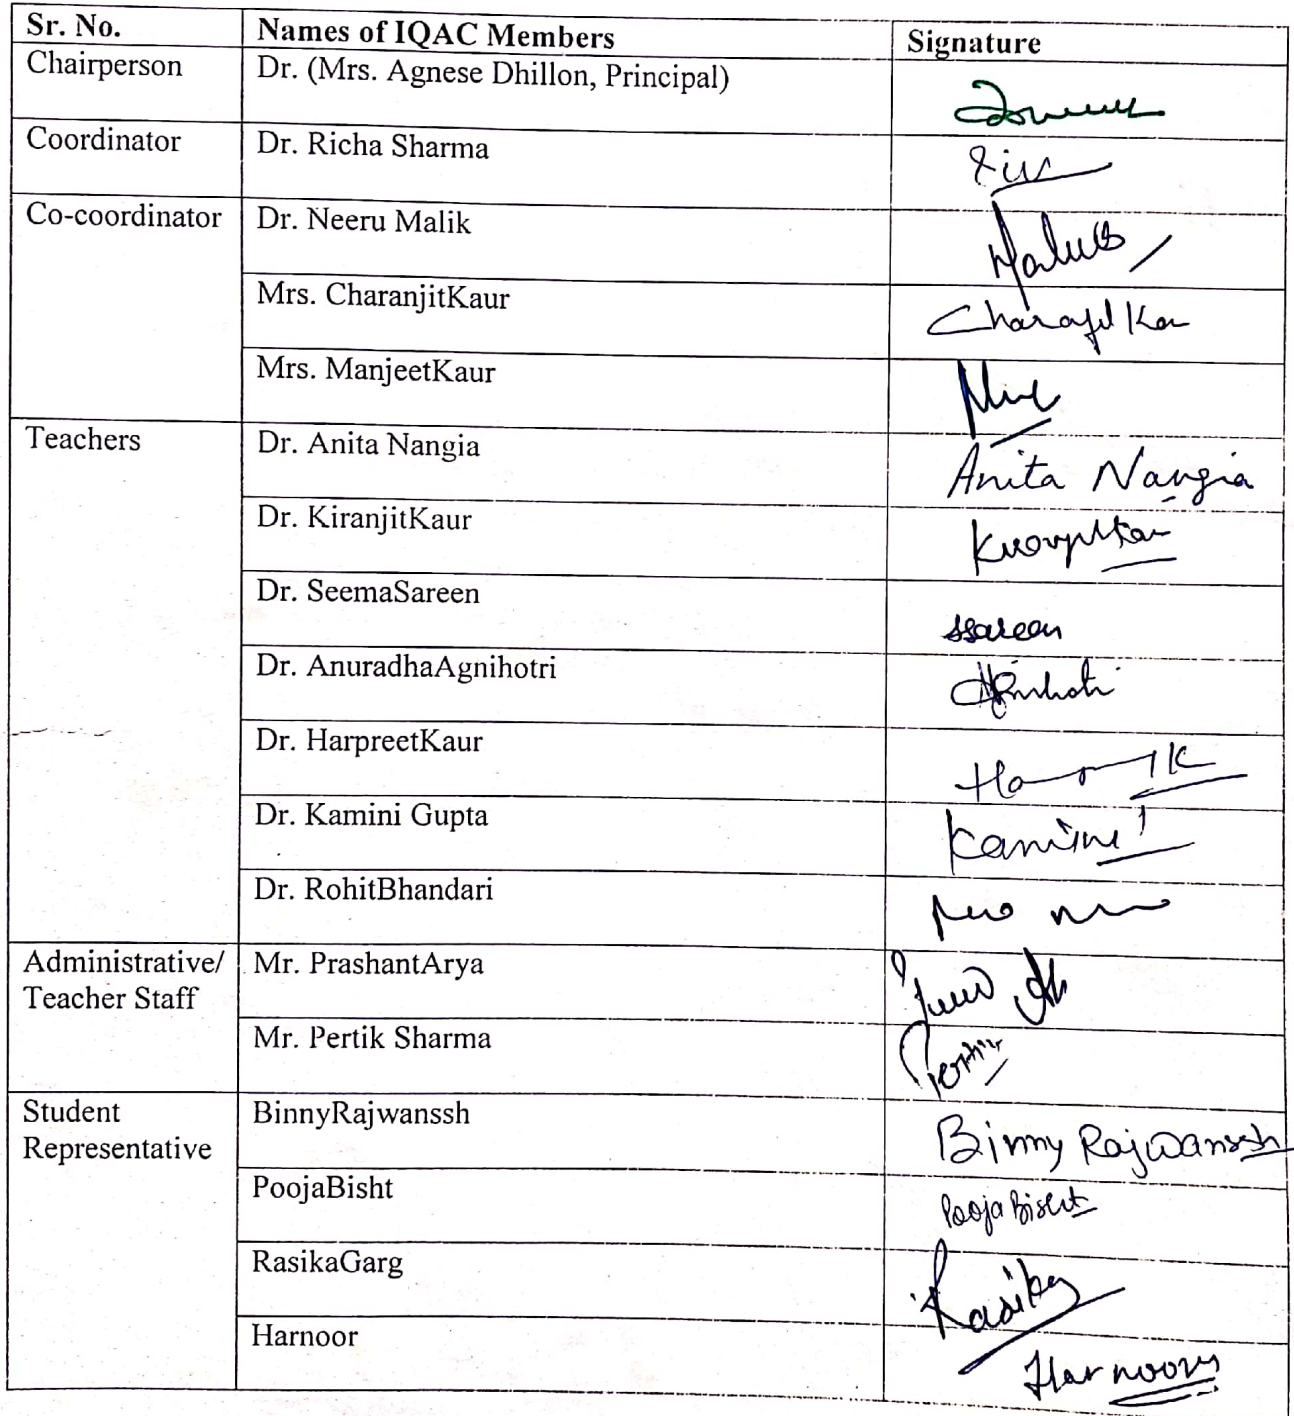 Sr. No. Names of IQAC Members Signature
Chairperson Dr. (Mrs. Agnese Dhillon, Principal)
Coordinator Dr. Richa Sharma
Co-coordinator Dr. Neeru Malik
Mrs. CharanjitKaur
Mrs. ManjeetKaur
Teachers Dr. Anita Nangia Anita Nangia
Dr. KiranjitKaur
Dr. SeemaSareen ssareen
Dr. AnuradhaAgnihotri
Dr. HarpreetKaur
Dr. Kamini Gupta Kamini
Dr. RohitBhandari
Administrative/ Mr. PrashantArya
Teacher Staff
Mr. Pertik Sharma
Student BinnyRajwanssh Binny Rajwanssh
Representative
PoojaBisht Pooja Bisht
RasikaGarg Rasika
Harnoor Harnoor